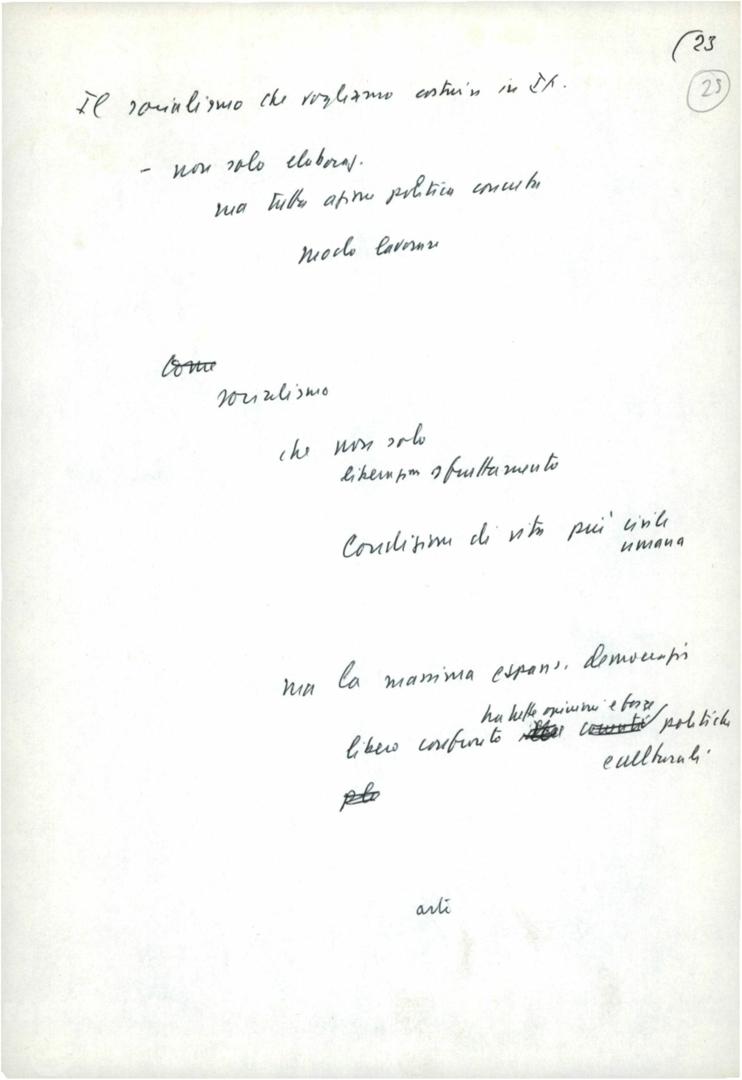 (23
23
Il socialismo che vogliamo costruire in It.
- non solo elaboraz.
ma tutta azione politica concreta
modo lavorare
Come
socialismo
che non solo
liberazion sfruttamento
Condizioni di vita più civile
umana
ma la massima espans. democrazia
tra tutte opinioni e forze
libero confronto politiche
culturali
arti